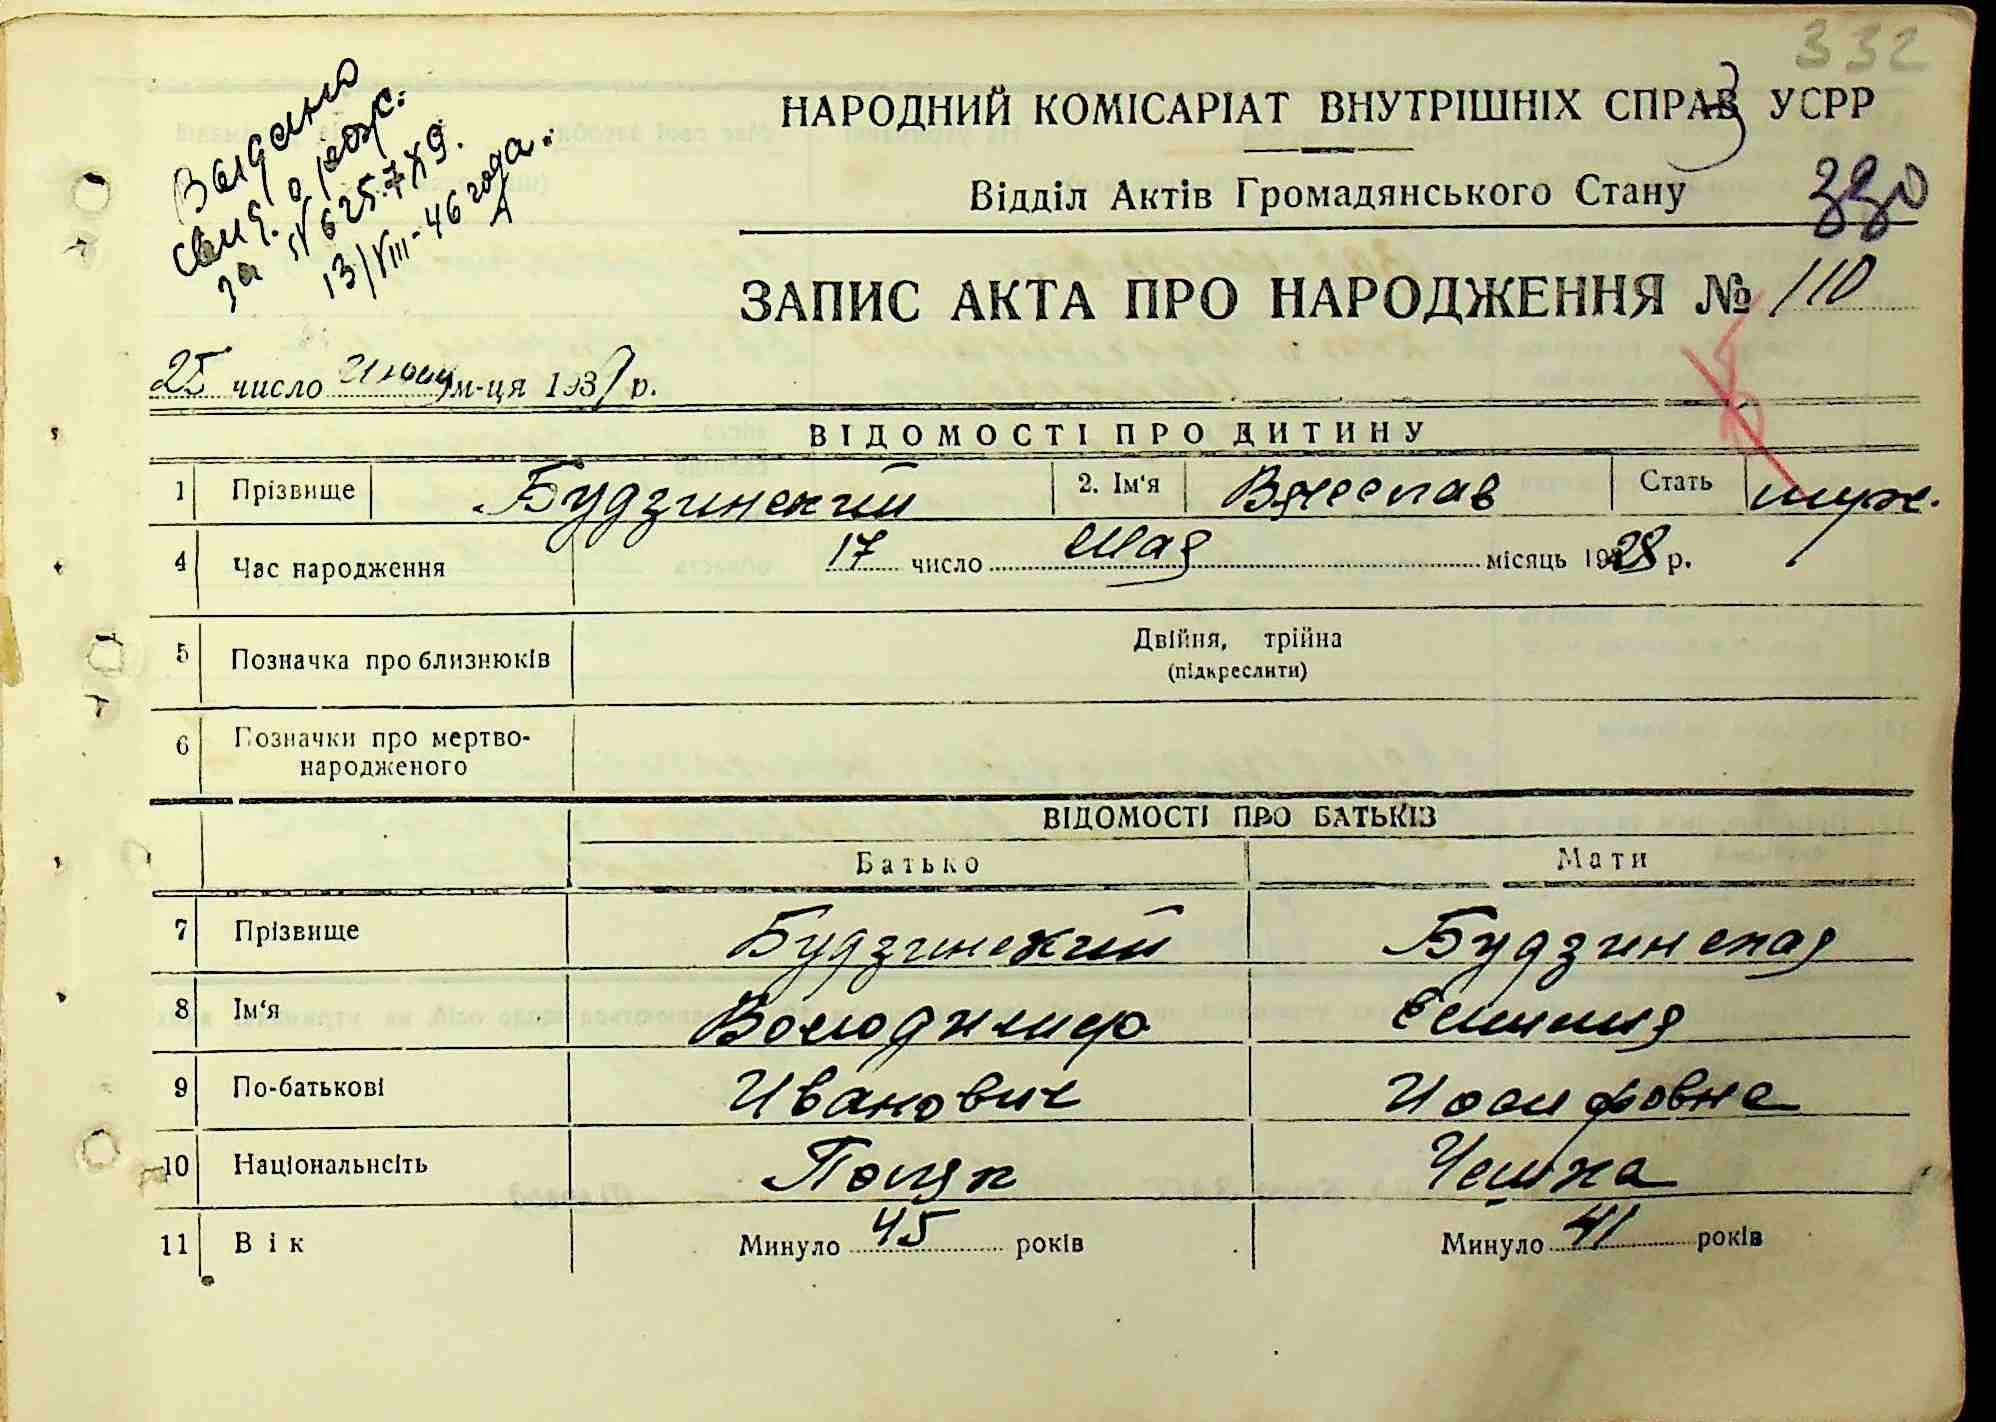 332
Выдано
свид. о рож.
за № 625789.
13/VIII-46 года.
НАРОДНИЙ КОМІСАРІАТ ВНУТРІШНІХ СПРАВ УСРР
Відділ Актів Громадянського Стану
330
ЗАПИС АКТА ПРО НАРОДЖЕННЯ № 110
25 число Июня м-ця 1939 р.
ВІДОМОСТІ ПРО ДИТИНУ
1 Прізвище Будзинский 2. Ім'я Вячеслав Стать муж.
4 Час народження 17 число Мая місяць 1928 р.
5 Позначка про близнюків Двійня, трійна
(підкреслити)
6 Позначки про мертво-
народженого
ВІДОМОСТІ ПРО БАТЬКІВ
Батько Мати
7 Прізвище Будзинский Будзинская
8 Ім'я Володимир Емилия
9 По-батькові Иванович Иосифовна
10 Національнсіть Поляк Чешка
11 Вік Минуло 45 років Минуло 41 років